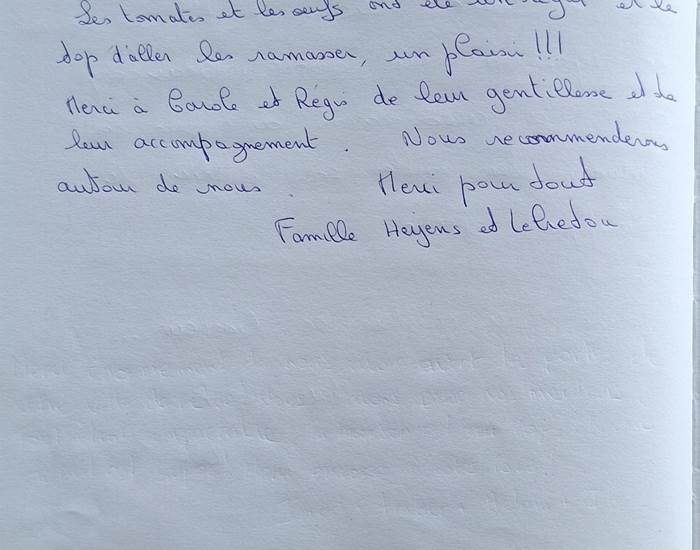 Les tomates et les œufs ont été un régal et le
top d'aller les ramasser, un plaisir !!!
Merci à Carole et Régis de leur gentillesse et de
leur accompagnement. Nous recommenderons
autour de nous. Merci pour tout
Famille Heyens et Lehedou